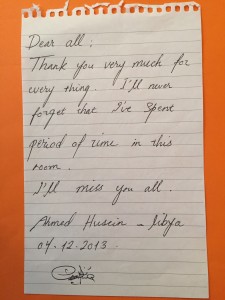 Dear all :
Thank you very much for
every thing. I'll never
forget that I've spent
period of time in this
room.
I'll miss you all.
Ahmed Husein - libya
04.12.2013.